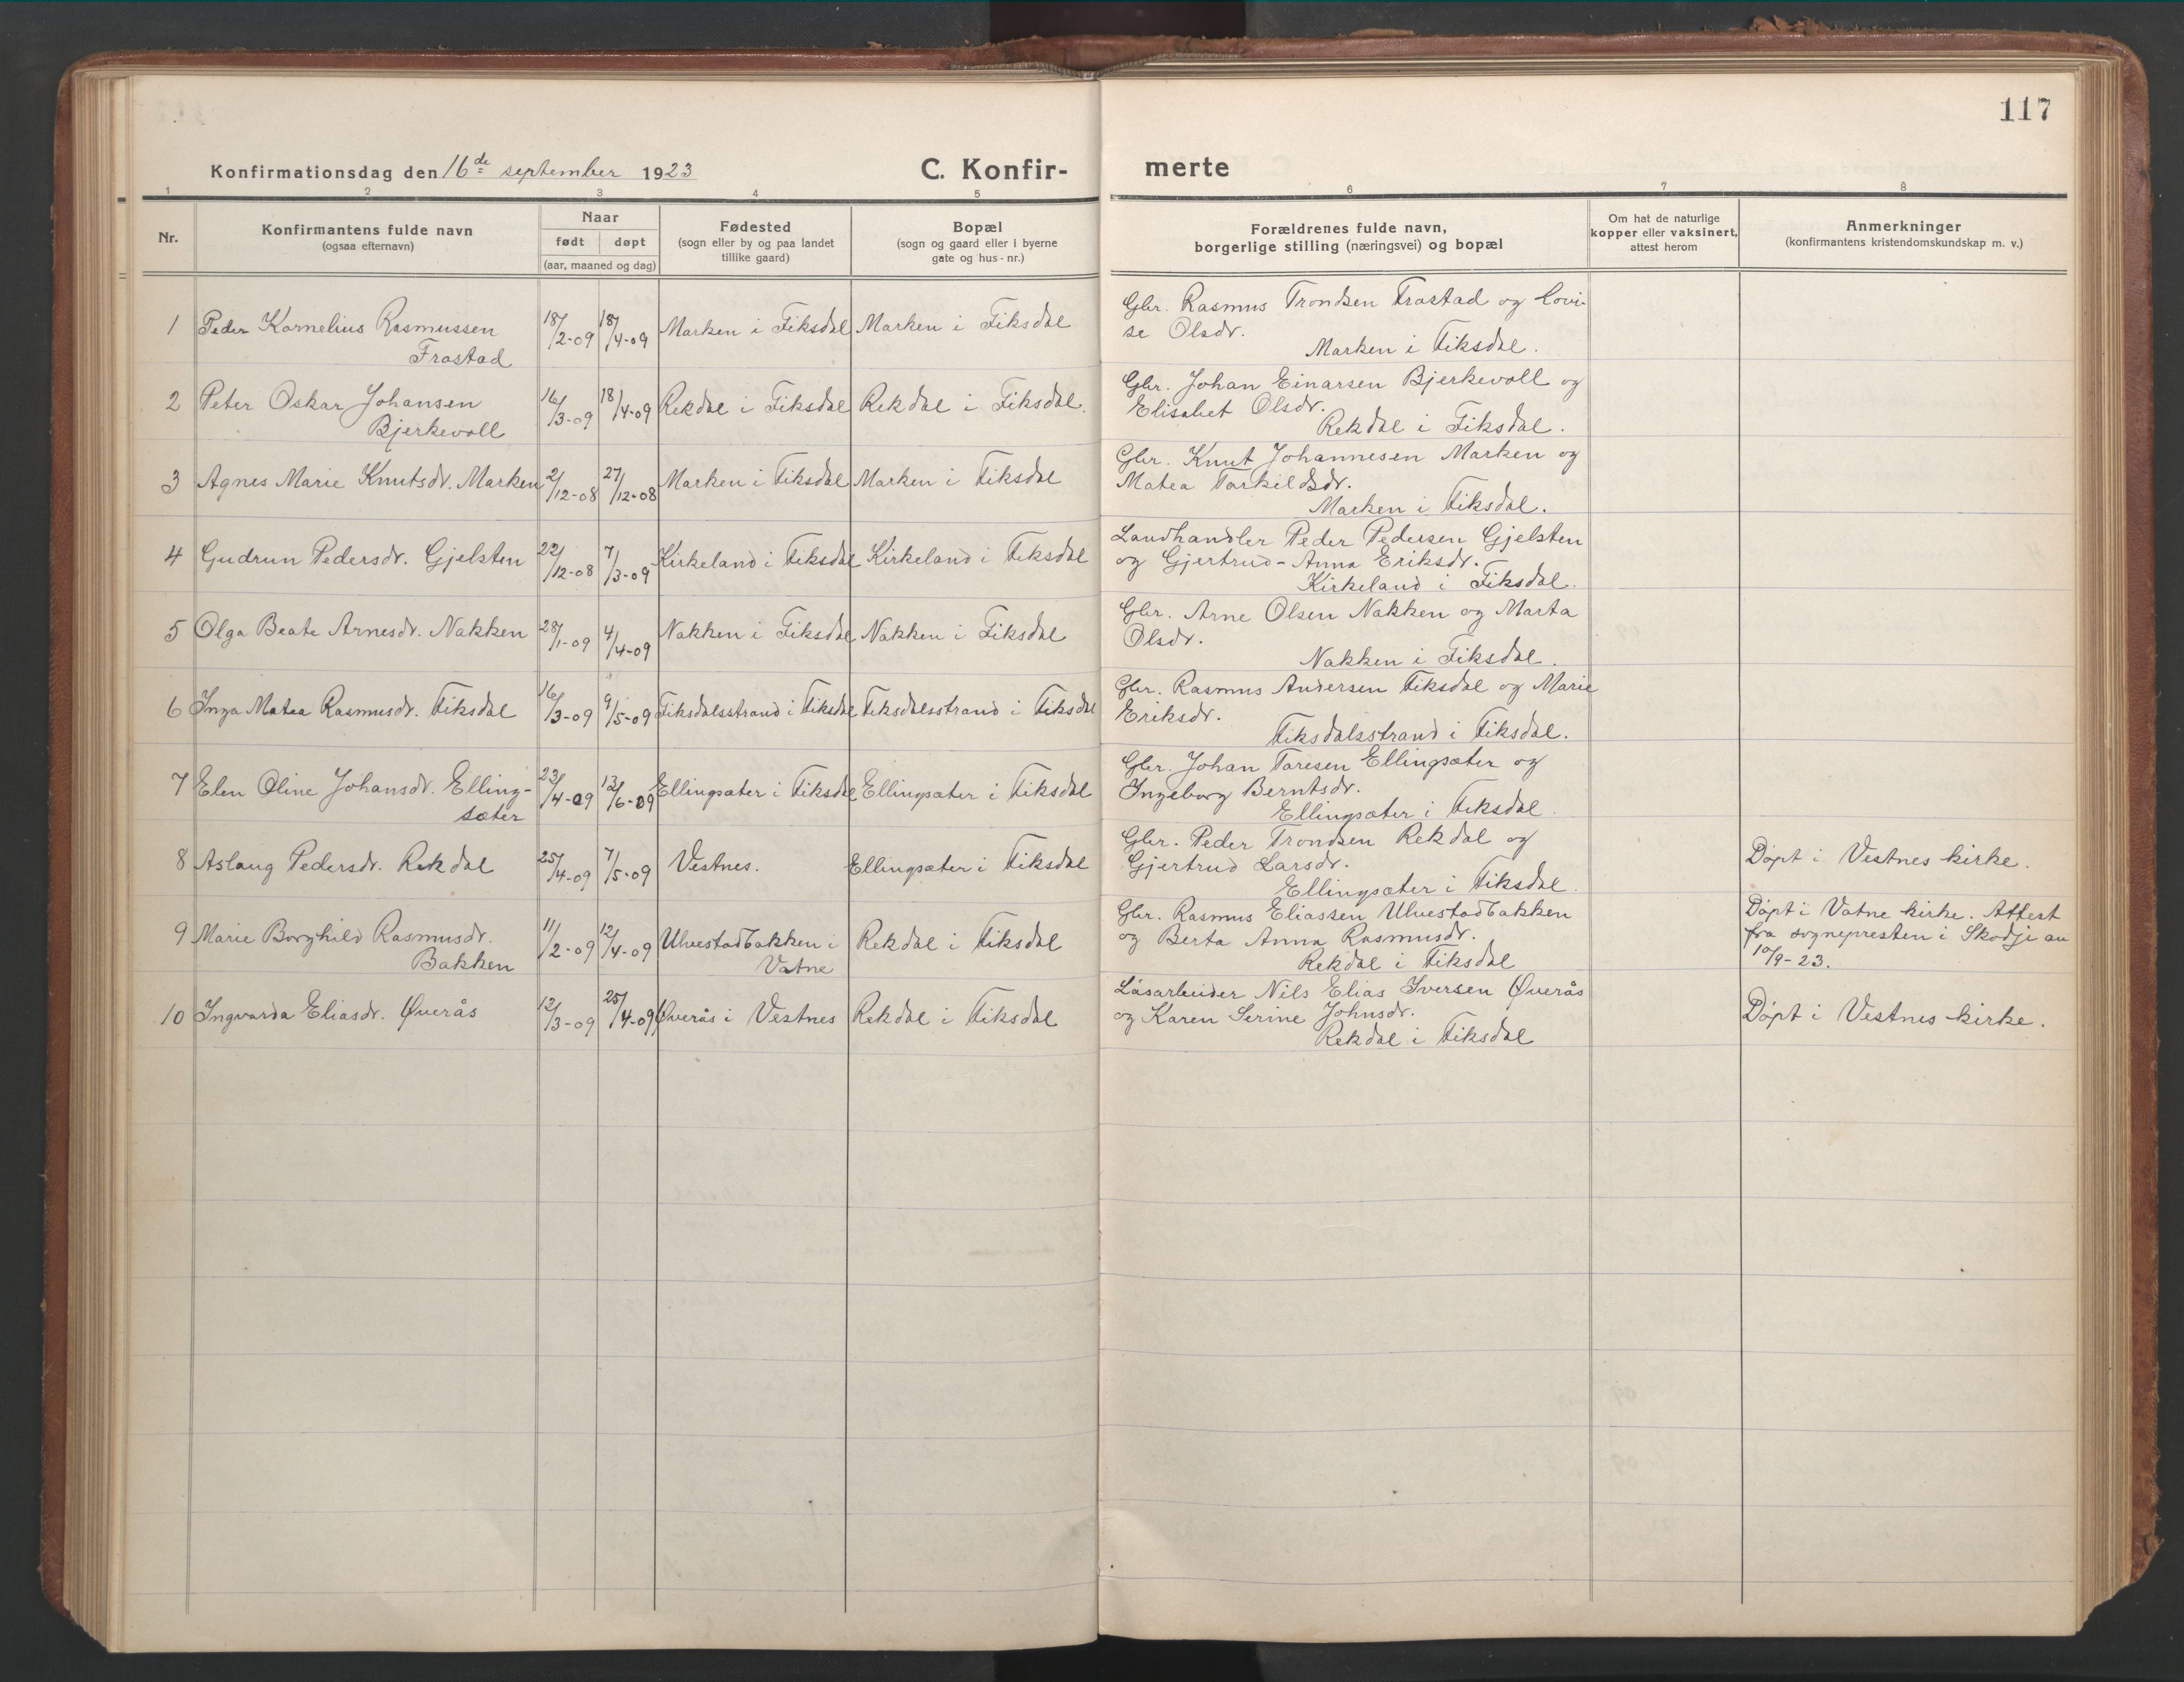 117
Konfirmationsdag den 16de september 1923
C. Konfir-
merte
1 2 3 4 5 6 7 8
Nr.
Konfirmantens fulde navn
(ogsaa efternavn)
Naar
født døpt
(aar, maaned og dag)
Fødested
(sogn eller by og paa landet
tillike gaard)
Bopæl
(sogn og gaard eller i byerne
gate og hus-nr.)
Forældrenes fulde navn,
borgerlige stilling (næringsvei) og bopæl
Om hat de naturlige
kopper eller vaksinert,
attest herom
Anmerkninger
(konfirmantens kristendomskundskap m. v.)
1 Peder Kornelius Rasmussen
Frostad
18/2-09 18/4-09 Marken i Fiksdal Marken i Fiksdal
Gbr. Rasmus Trondsen Frostad og Lovi-
se Olsdr.
Marken i Fiksdal.
2 Peter Oskar Johansen
Bjerkevoll
16/3-09 18/4-09 Rekdal i Fiksdal Rekdal i Fiksdal.
Gbr. Johan Einarsen Bjerkevoll og
Elisabet Olsdr.
Rekdal i Fiksdal.
3 Agnes Marie Knutsdr. Marken 2/12-08 27/12-08 Marken i Fiksdal Marken i Fiksdal
Gbr. Knut Johannesen Marken og
Matea Torkildsdr.
Marken i Fiksdal.
4 Gudrun Pedersdr. Gjelsten 22/12-08 7/3-09 Kirkeland i Fiksdal Kirkeland i Fiksdal
Landhandler Peder Pedersen Gjelsten
og Gjertrud-Anna Eriksdr.
Kirkeland i Fiksdal.
5 Olga Beate Arnesdr. Nakken 28/1-09 4/4-09 Nakken i Fiksdal Nakken i Fiksdal
Gbr. Arne Olsen Nakken og Marta
Olsdr.
Nakken i Fiksdal.
6 Inga Matea Rasmusdr. Fiksdal 16/3-09 9/5-09 Fiksdalsstrand i Fiksdal Fiksdalsstrand i Fiksdal
Gbr. Rasmus Andersen Fiksdal og Marie
Eriksdr.
Fiksdalsstrand i Fiksdal.
7 Elen Oline Johansdr. Elling-
sæter
23/4-09 13/6-09 Ellingsæter i Fiksdal Ellingsæter i Fiksdal
Gbr. Johan Toresen Ellingsæter og
Ingeborg Berntsdr.
Ellingsæter i Fiksdal.
8 Aslaug Pedersdr. Rekdal 25/4-09 7/5-09 Vestnes. Ellingsæter i Fiksdal
Gbr. Peder Trondsen Rekdal og
Gjertrud Larsdr.
Ellingsæter i Fiksdal.
Døpt i Vestnes kirke.
9 Marie Borghild Rasmusdr.
Bakken
11/2-09 12/4-09 Ulvestadbakken i
Vatne
Rekdal i Fiksdal
Gbr. Rasmus Eliassen Ulvestadbakken
og Berta Anna Rasmusdr.
Rekdal i Fiksdal
Døpt i Vatne kirke. Attest
fra sognepresten i Skodje av
10/9-23.
10 Ingvarda Eliasdr. Øverås 12/3-09 25/4-09 Øverås i Vestnes Rekdal i Fiksdal
Løsarbeider Nils Elias Iversen Øverås
og Karen Serine Johnsdr.
Rekdal i Fiksdal
Døpt i Vestnes kirke.